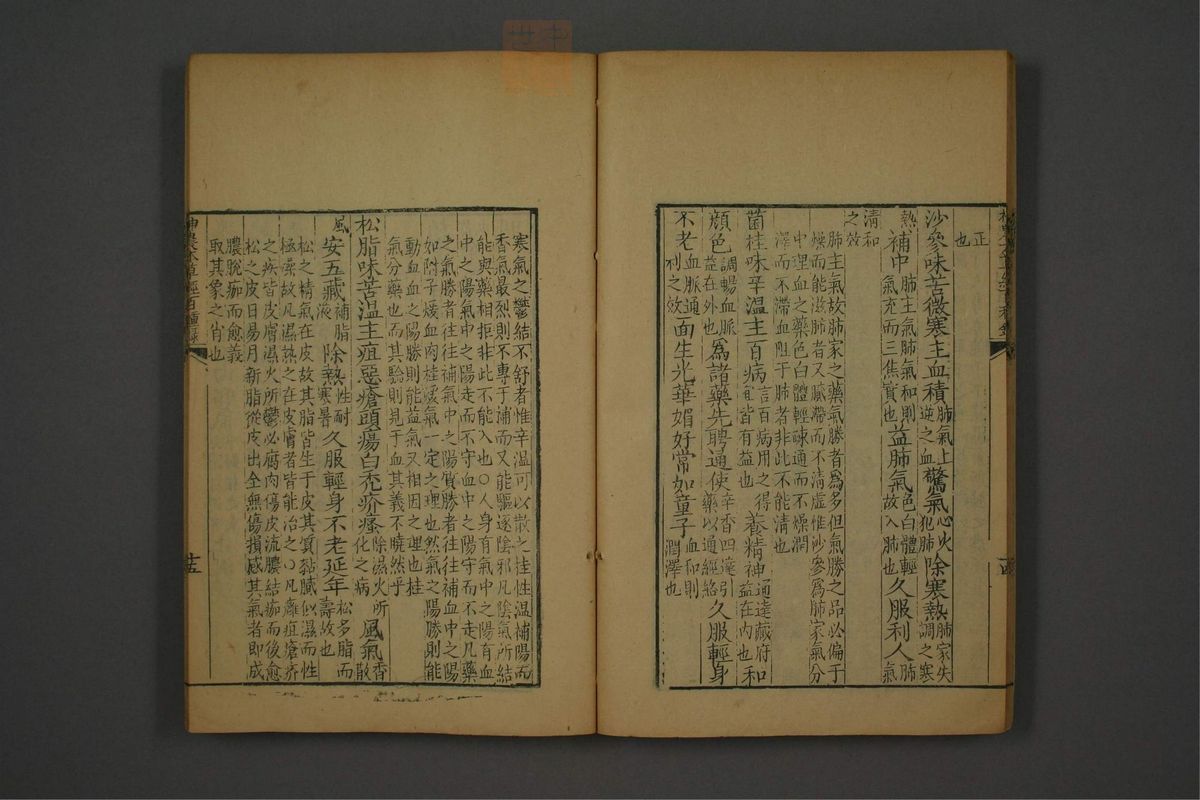 正
也
沙參味苦微寒主血積肺氣上逆之血驚氣心火犯肺除寒熱肺家失調之寒
熱補中肺主氣肺氣和則氣充而三焦實也益肺氣色白體輕故入肺也久服利人肺氣
清和
之效
肺主氣故肺家之藥氣勝者爲多但氣勝之品必偏于
燥而能滋肺者又膩滯而不清虛惟沙參爲肺家氣分
中理血之藥色白體輕疎通而不燥潤
澤而不滯血阻于肺者非此不能清也
菌桂味辛溫主百病言百病用之得宜皆有益也養精神通達藏府益在內也和
顏色調暢血脈益在外也爲諸藥先聘通使辛香四達引藥以通經絡久服輕身
不老血脈通利之效面生光華媚好常如童子血和則潤澤也
寒氣之鬱結不舒者惟辛溫可以散之桂性溫補陽而
香氣最烈則不專于補而又能驅逐陰邪凡陰氣所結
能與藥相拒非此不能入也〇人身有氣中之陽有血
中之陽氣中之陽走而不守血中之陽守而不走凡藥
之氣勝者往往補氣中之陽質勝者往往補血中之陽
如附子煖血肉桂煖氣一定之理也然氣之陽勝則能
動血血之陽勝則能益氣又相因之理也桂
氣分藥也而其驗則見于血其義不曉然乎
松脂味苦溫主疽惡瘡頭瘍白禿疥瘙除濕火所化之病風氣香散
風安五藏補脂液除熱性耐寒暑久服輕身不老延年松多脂而壽故也
松之精氣在皮故其脂皆生于皮其質黏膩似濕而性
極燥故凡濕熱之在皮膚者皆能治之〇凡癰疽瘡疥
之疾皆皮膚濕火所鬱必腐肉傷皮流膿結痂而後愈
松之皮日易月新脂從皮出全無傷損感其氣者卽成
膿脫痂而愈義
取其象之肖也
神農本草經百種錄
十五